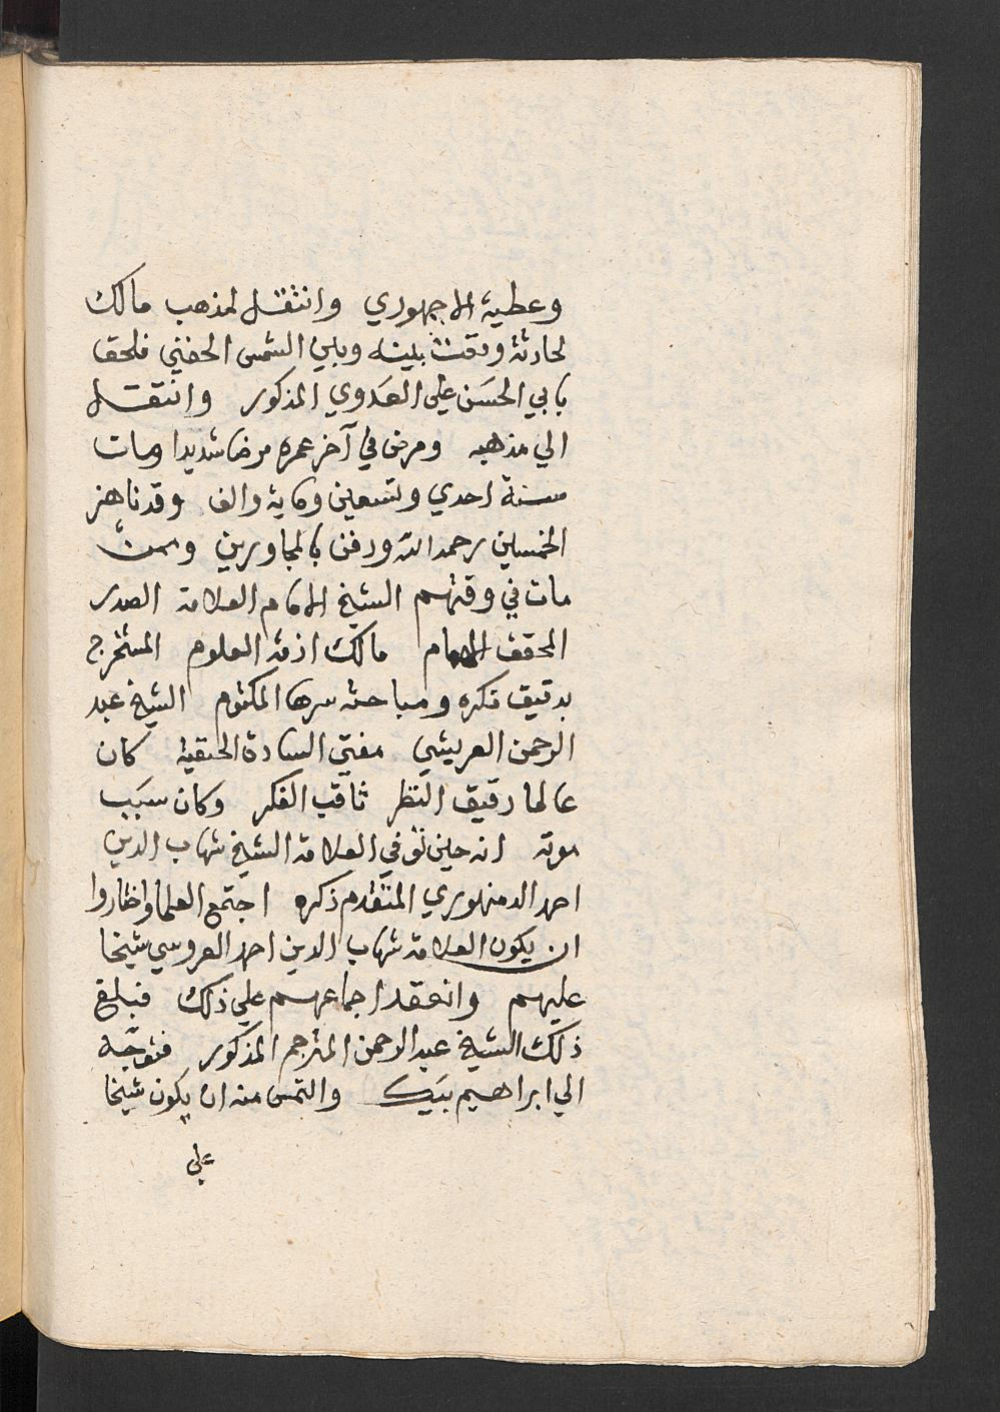 وعطية الاجهوري وانتقل لمذهب مالك
لحادثة وقعت بينه وبين الشمس الحفني فلحق
بابي الحسَن علي العدوي المذكور وانتقل
الي مذهبه ومرض في آخر عمره مرضا شديدا ومات
سنة احدي وتسعين وماية والف وقد ناهز
الخمسين رحمه الله ودفن بالمجاورين وممن
مات في وقتهم الشيخ الامام العلامة الصدر
المحقق الهمام مالك ازمة العلوم المستخرج
بدقيق فكره ومباحثه سرها المكتوم الشيخ عبد
الرحمن العريشي مفتي السادة الحنفية كان
عالما دقيق النظر ثاقب الفكر وكان سبَب
موته انه حين توفي العلامة الشيخ شهاب الدين
احمد الدمنهوري المتقدم ذكره اجتمع العلما واختاروا
ان يكون العلامة شهاب الدين احمد العروسي شيخا
عليهم وانعقد اجماعهم علي ذلك فبلغ
ذلك الشيخ عبد الرحمن المترجم المذكور فتوجّه
الي ابراهيم بيَك والتمس منه ان يكون شيخا
علي